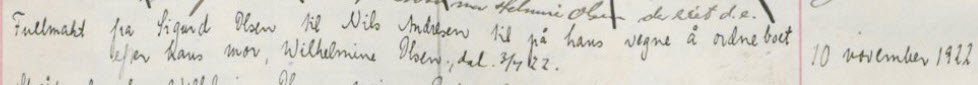 Helmine Olsen
Fullmakt fra Sigurd Olsen til Nils Andresen til på hans vegne å ordne boet
efter hans mor, Wilhelmine Olsen, dat. 3/7 22.
10 november 1922